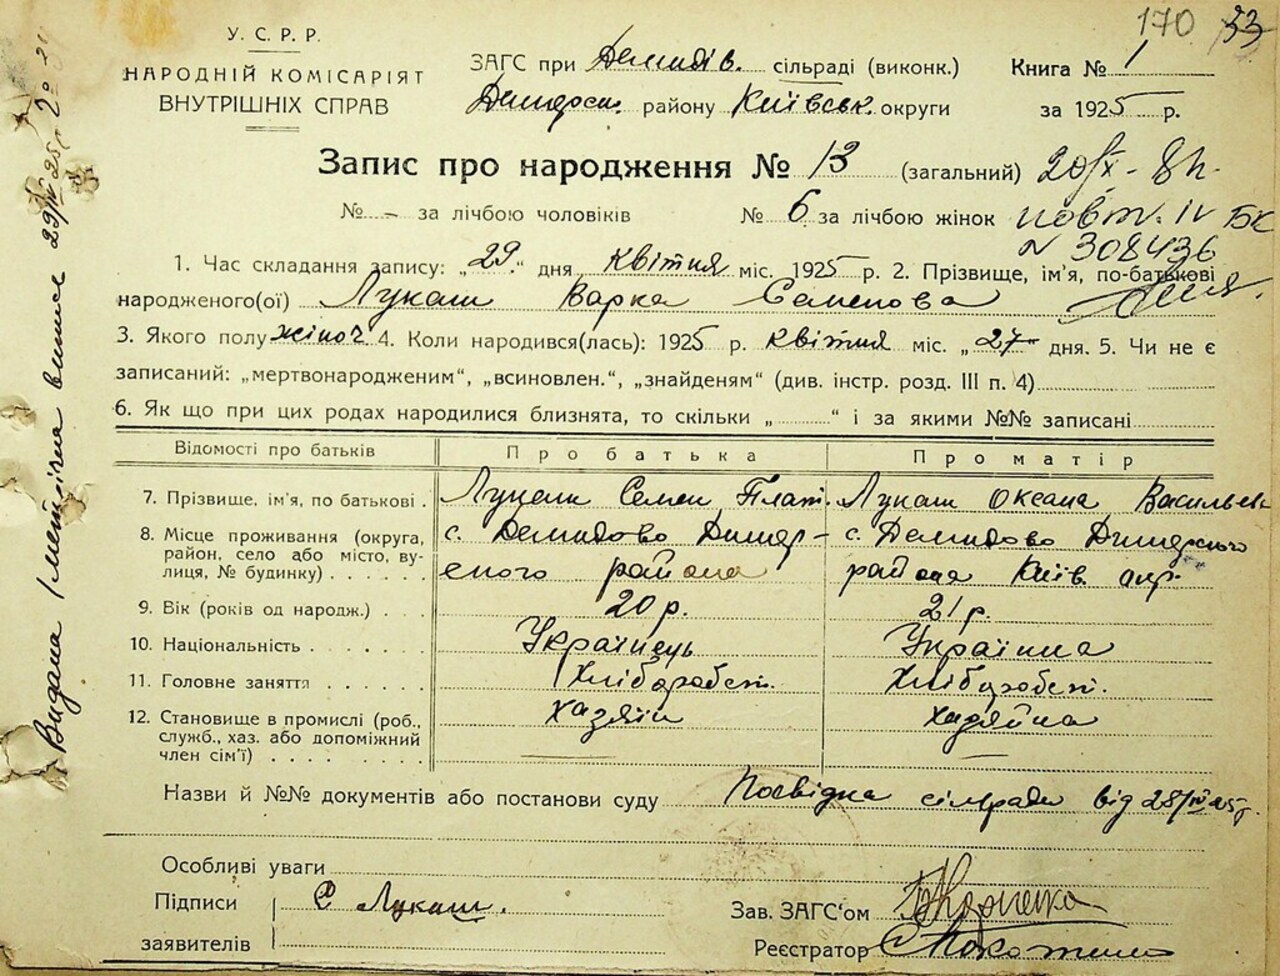 170 33
У. С. Р. Р.
НАРОДНІЙ КОМІСАРІЯТ
ВНУТРІШНІХ СПРАВ
ЗАГС при Демидів. сільраді (виконк.)
Димерськ. району Київськ. округи
Книга № 1
за 1925 р.
Запис про народження № 13 (загальний) 20/IX - 8 h.
№ - за лічбою чоловіків № 6 за лічбою жінок повт. IV БК
N 308436
1. Час складання запису: „29“ дня квітня міс. 1925 р. 2. Прізвище, ім'я, по-батькові
народженого(ої) Лукаш Варка Семенова
3. Якого полу жіноч. 4. Коли народився(лась): 1925 р. квітня міс. „27“ дня. 5. Чи не є
записаний: „мертвонародженим“, „всиновлен.“, „знайденям“ (див. інстр. розд. III п. 4)
6. Як що при цих родах народилися близнята, то скільки „ “ і за якими №№ записані
Відомості про батьків Про батька Про матір
7. Прізвище, ім'я, по батькові . Лукаш Семен Плат. Лукаш Оксана Васильев
8. Місце проживання (округа, район, село або місто, вулиця, № будинку) с. Демидово Димер-ского района с. Демидово Димерского района Київ. окр.
9. Вік (років од народж.) 20 р. 21 р.
10. Національність Українець Українка
11. Головне заняття Хліборобст. Хліборобст.
12. Становище в промислі (роб., служб., хаз. або допоміжний член сім'ї) хазяїн хазяйка
Назви й №№ документів або постанови суду Посвідка сільради від 28/IV 25 р.
Особливі уваги
Підписи С Лукаш.
заявителів
Зав. ЗАГС'ом
Реєстратор
Видана метрічна виписс 29/IV 25 р.